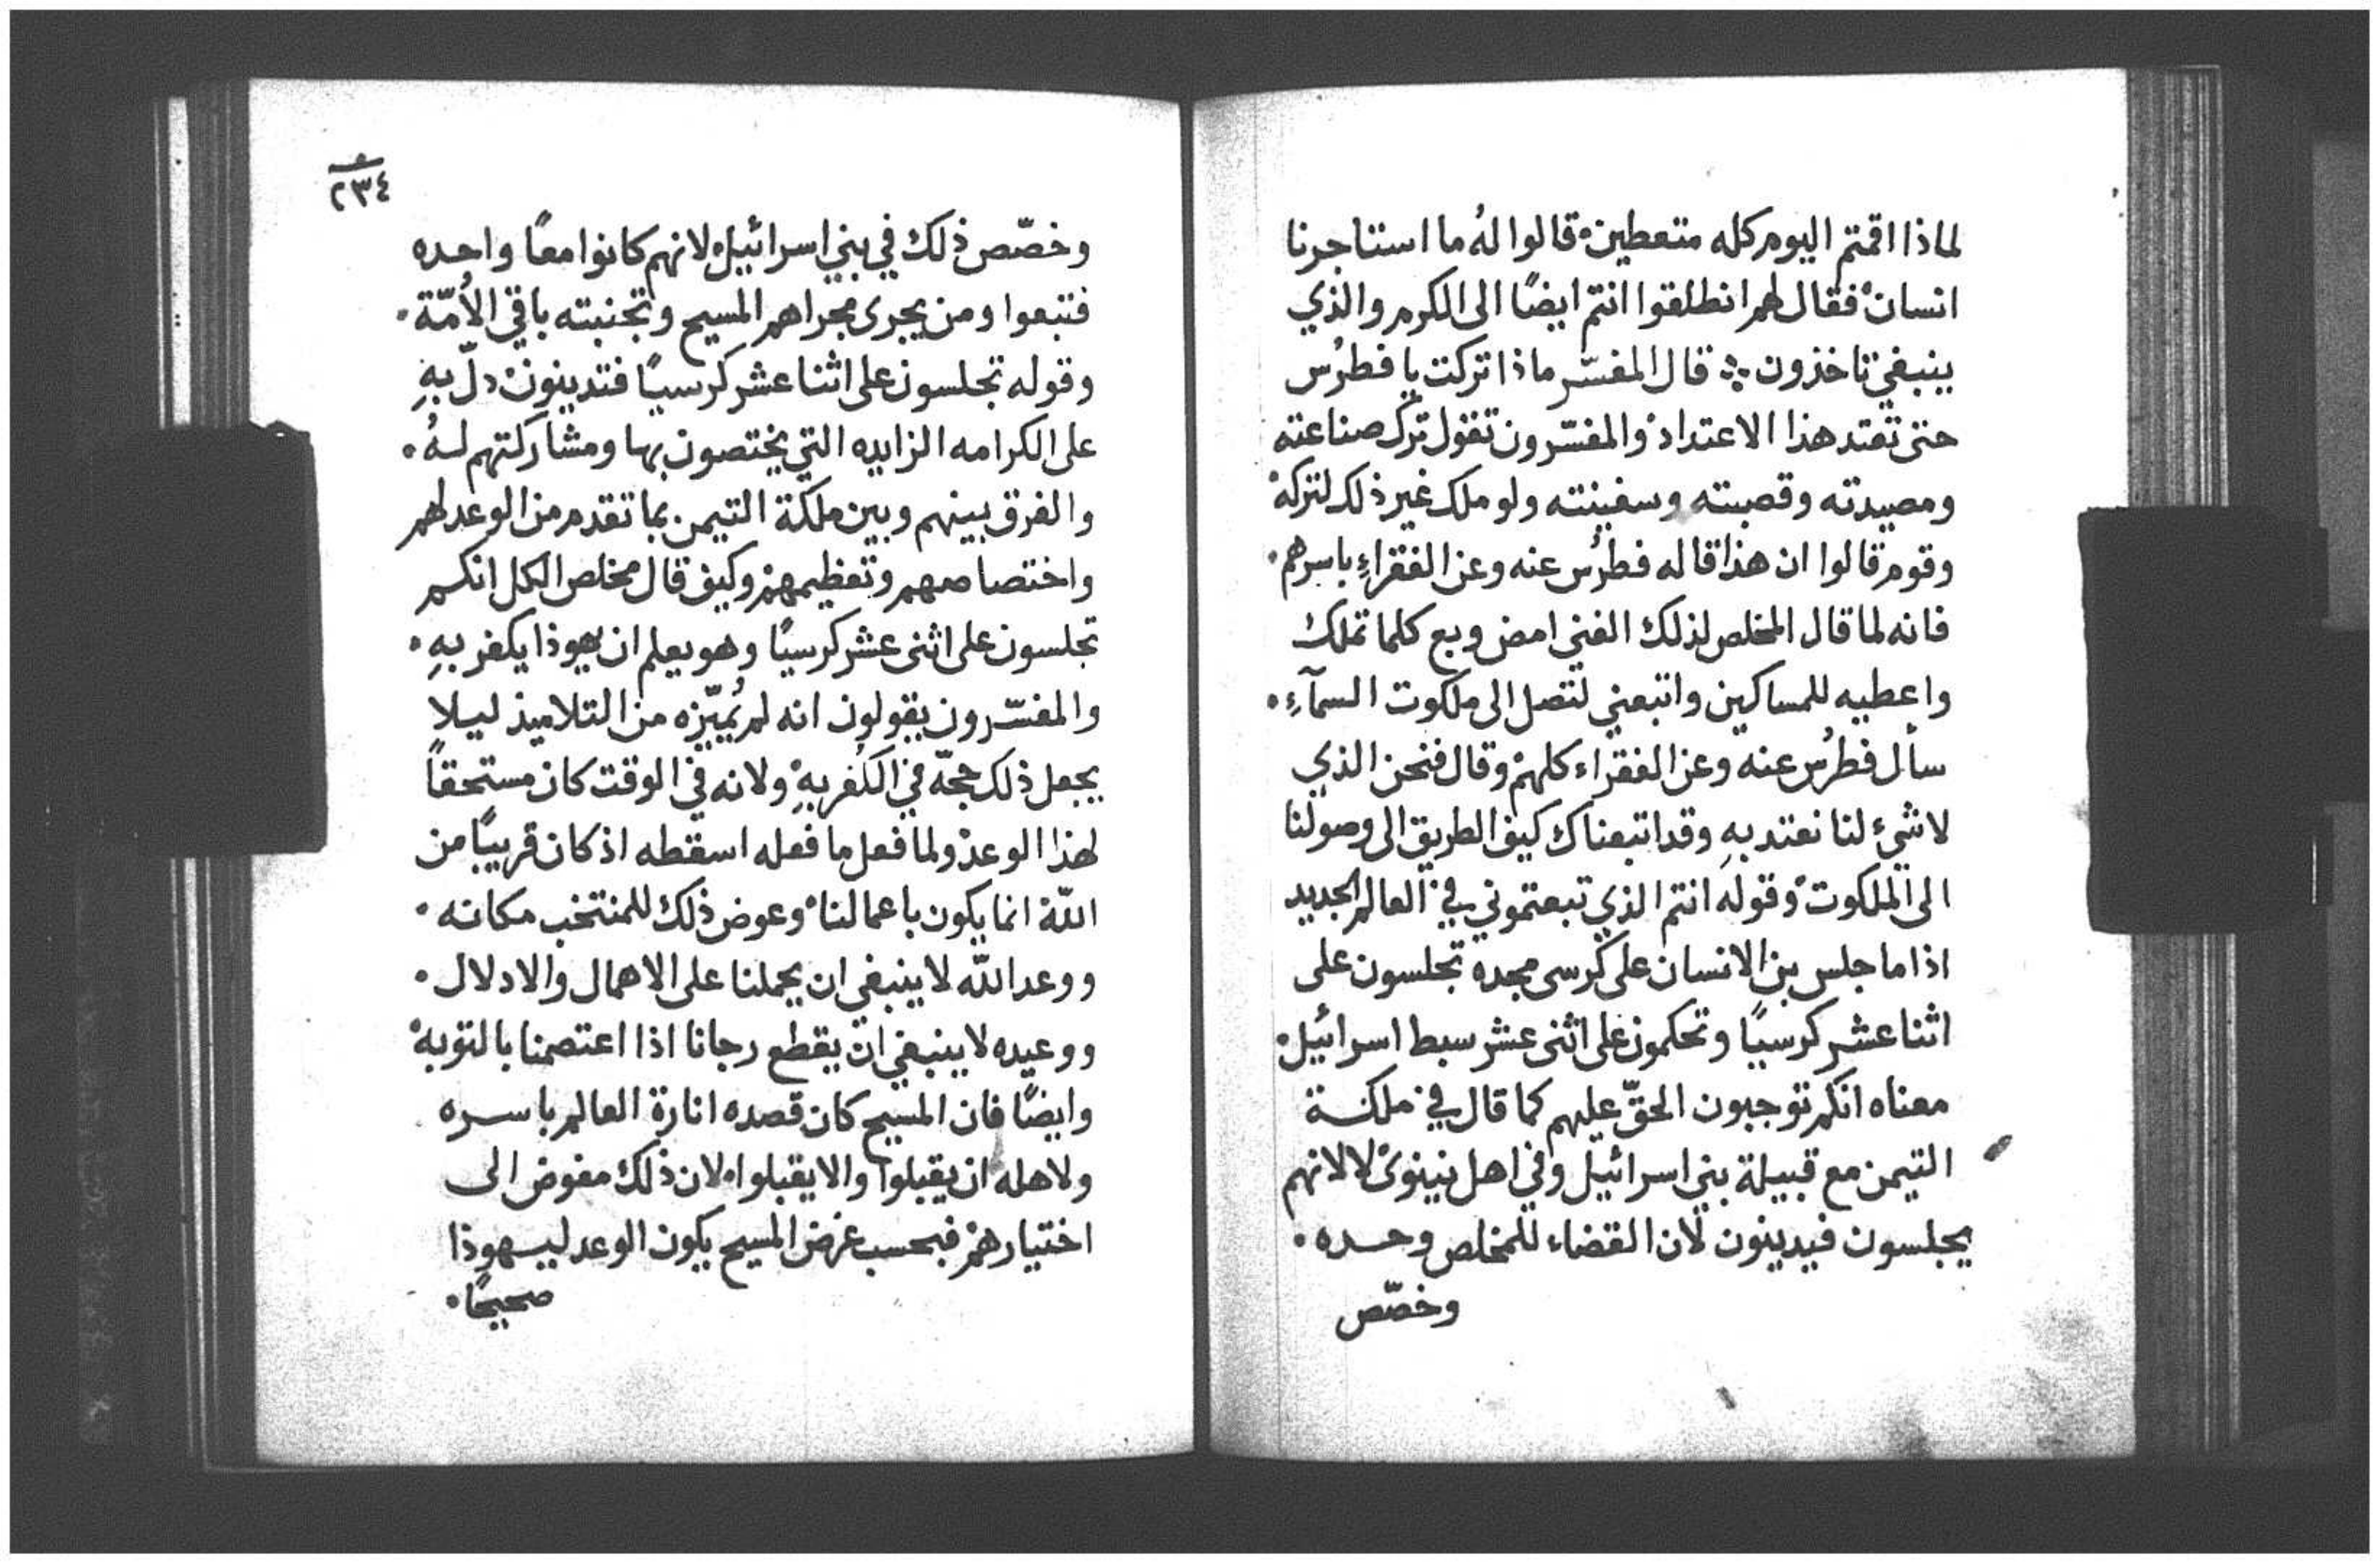 لماذا اقمتم اليوم كله متعطين۰ قالوا لهُ ما استاجرنا
انسان۰ فقال لهم انطلقوا انتم ايضًا الى الكرم والذي
ينبغي تاخذون ۞ قال المفسّر ماذا تركت يا فطرُس
حتى تعتد هذا الاعتداد۰ والمفسّرون تقول ترك صناعته
ومصيدته وقصبته وسفينته ولو ملك غير ذلك لتركه۰
وقوم قالوا ان هذا قاله فطرُس عنه وعن الفقراءِ باسرهم۰
فانه لما قال المخلص لذلك الغني امض وبع كلما تملك
واعطيه للمساكين واتبعني لتصل الى ملكوت السمآءِ۰
سأل فطرُس عنه وعن الفقراء كلهم۰ وقال فنحن الذي
لا شيءَ لنا نعتد بهِ وقد اتبعناك كيف الطريق الى وصولنا
الى الملكوت۰ وقوله انتم الذي تبعتموني في العالم الجديد
اذا ما جلس بن الانسان على كرسى مجده تجلسون على
اثنا عشر كرسيًا وتحكمون على اثنى عشر سبط اسرائيل۰
معناه انكم توجبون الحقّ عليهم كما قال في ملكة
التيمن مع قبيلة بني اسرائيل وفي اهل نينوى۰ لا لانهم
يجلسون فيدينون لان القضاء للمخلص وحده۰
وخصّص
٢٣٤
وخصّص ذلك في بني اسرائيل۰ لانهم كانوا معًا واحده
فتبعوا ومن يجرى مجراهم المسيح وتجنبته باقي الأُمّة۰
وقوله تجلسون على اثنا عشر كرسيًا فتدينون۰ دلّ بهِ
على الكرامه الزايده التي يختصون بها ومشاركتهم لهُ۰
والفرق بينهم وبين ملكة التيمن بما تقدم من الوعد لهم
واختصاصهم وتعظيمهم۰ وكيف قال مخلص الكل انكم
تجلسون على اثنى عشر كرسيًا وهو يعلم ان يهوذا يكفر بهِ۰
والمفسّرون يقولون انه لم يُميّزه من التلاميذ ليلا
يجعل ذلك حجّة في الكُفر بهِ۰ ولانه في الوقت كان مستحقاً
لهذا الوعد۰ ولما فعل ما فعله اسقطه اذ كان قريبًا من
اللّه انما يكون باعمالنا۰ وعوض ذلك للمنتخب مكانه۰
ووعد اللّه لا ينبغي ان يحملنا على الاهمال والادلال۰
ووعيده لا ينبغي ان يقطع رجانا اذا اعتصمنا بالتوبة۰
وايضًا فان المسيح كان قصده انارة العالم باسره
ولاهله ان يقبلوا والا يقبلوا۰ لان ذلك مفوض الى
اختيارهم۰ فبحسب غرض المسيح يكون الوعد ليهوذا
صحيحًا۰